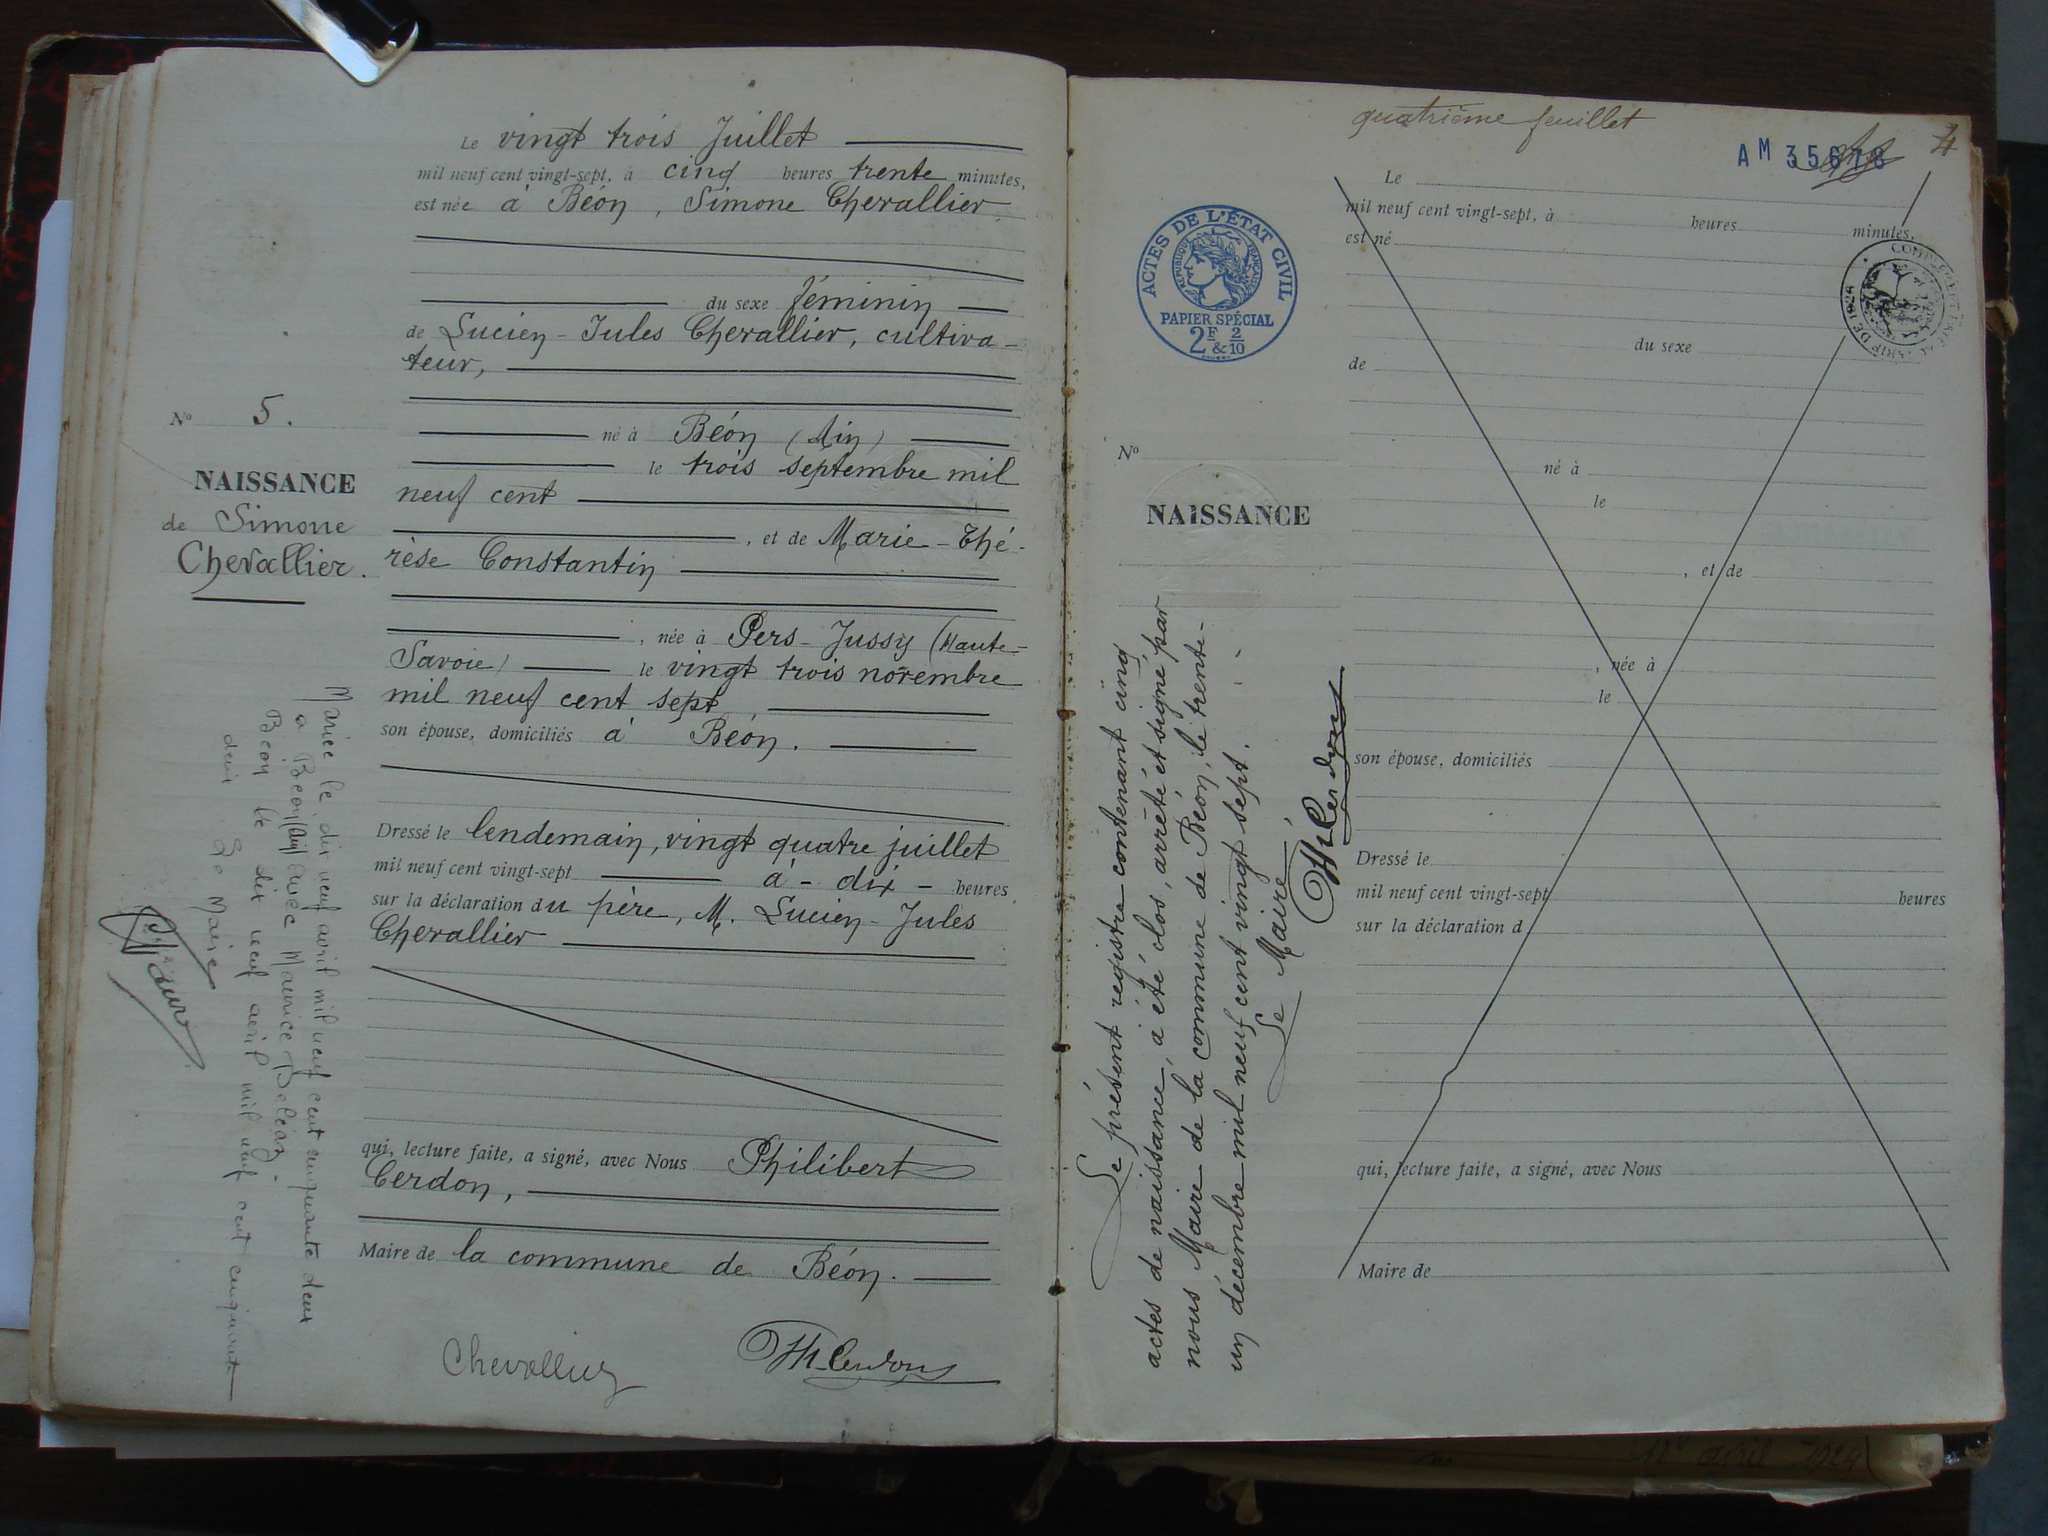 Le vingt trois Juillet
mil neuf cent vingt-sept, à cinq heures trente minutes,
est née à Béon, Simone Chevallier
du sexe féminin
de Lucien-Jules Chevallier, cultiva-
teur,
né à Béon (Ain)
le trois septembre mil
neuf cent
, et de Marie-Thé-
rèse Constantin
, née à Pers-Jussy (Haute-
Savoie) le vingt trois novembre
mil neuf cent sept,
son épouse, domiciliés à Béon.
Dressé le lendemain, vingt quatre juillet
mil neuf cent vingt-sept à - dix - heures
sur la déclaration du père, M. Lucien-Jules
Chevallier
qui, lecture faite, a signé, avec Nous Philibert
Cerdon,
Maire de la commune de Béon.
Chevallier
Ph Cerdon
No 5.
NAISSANCE
de Simone
Chevallier.
Mariée le dix neuf avril mil neuf cent cinquante deux
à Béon (Ain) avec Maurice
Béon le dix neuf avril mil neuf cent cinquante
deux Le Maire
quatrième feuillet
4
AM 35678
ACTES DE L'ÉTAT CIVIL
RÉPUBLIQUE FRANÇAISE
PAPIER SPÉCIAL
2F & 2/10
TARIF DE 1926
Le
mil neuf cent vingt-sept, à heures minutes,
est né
du sexe
de
No
né à
NAISSANCE
le
, et de
, née à
le
son épouse, domiciliés
Dressé le
mil neuf cent vingt-sept heures
sur la déclaration d
qui, lecture faite, a signé, avec Nous
Maire de
Le présent registre contenant cinq
actes de naissance, a été clos, arrêté et signé par
nous Maire de la commune de Béon, le trente-
un décembre mil neuf cent vingt sept.
Le Maire
Ph Cerdon
avril 1924